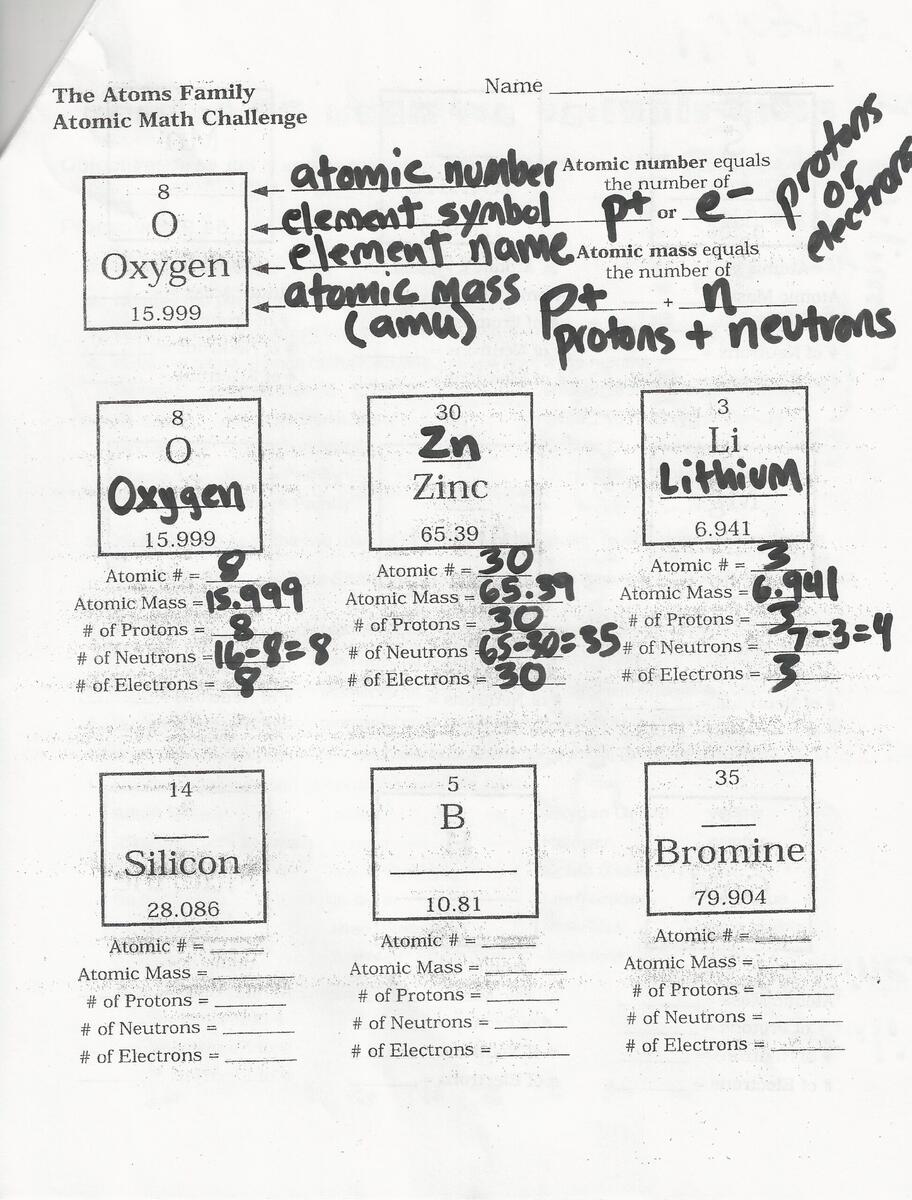 Name
The Atoms Family
Atomic Math Challenge
8
O
Oxygen
15.999
atomic number
element symbol
element name
atomic mass
(amu)
Atomic number equals
the number of
p+ or e-
protons
or
electrons
Atomic mass equals
the number of
p+ + n
protons + neutrons
8
O
Oxygen
15.999
Atomic # = 8
Atomic Mass = 15.999
# of Protons = 8
# of Neutrons = 16-8=8
# of Electrons = 8
30
Zn
Zinc
65.39
Atomic # = 30
Atomic Mass = 65.39
# of Protons = 30
# of Neutrons = 65-30=35
# of Electrons = 30
3
Li
Lithium
6.941
Atomic # = 3
Atomic Mass = 6.941
# of Protons = 3
# of Neutrons = 7-3=4
# of Electrons = 3
14
Silicon
28.086
Atomic # =
Atomic Mass =
# of Protons =
# of Neutrons =
# of Electrons =
5
B
10.81
Atomic # =
Atomic Mass =
# of Protons =
# of Neutrons =
# of Electrons =
35
Bromine
79.904
Atomic # =
Atomic Mass =
# of Protons =
# of Neutrons =
# of Electrons =